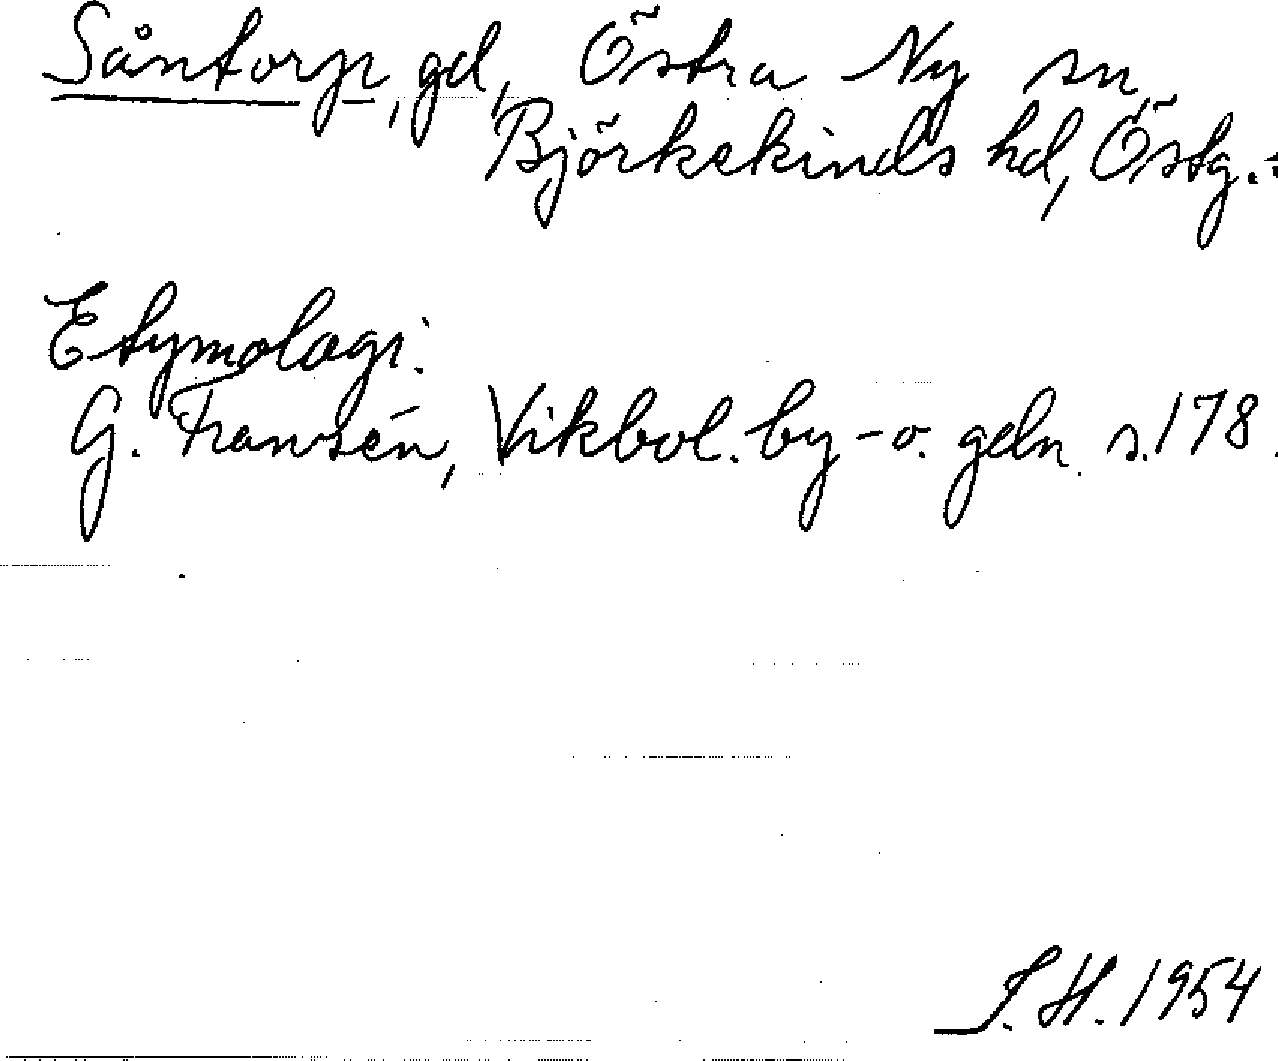 Såntorp, gd, Östra Ny sn,
Björkekinds hd, Östg.
Etymologi:
G. Fransén, Vikbol. by- o. gdn s. 178.
S.H. 1954